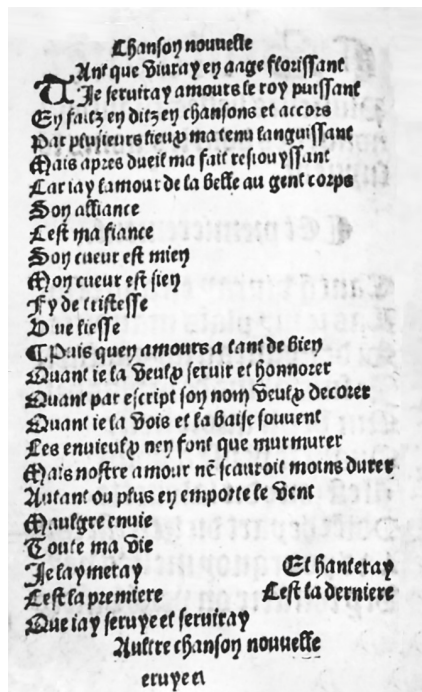 Chanson nouuelle
TAnt que viuray en aage florissant
Je seruiray amours le roy puissant
En faitz en ditz en chansons et accors
Par plusieurs lieux ma tenu languissant
Mais apres dueil ma fait resiouyssant
Car iay lamour de la belle au gent corps
Son alliance
Cest ma fiance
Son cueur est mien
Mon cueur est sien
Fy de tristesse
Viue liesse
¶ Puis quen amours a tant de bien
Quant ie la veulx seruir et honnorer
Quant par escript son nom veulx decorer
Quant ie la vois et la baise souuent
Les enuieulx nen font que murmurer
Mais nostre amour nē scauroit moins durer
Autant ou plus en emporte le vent
Maulgre enuie
Toute ma vie
Je laymeray Et hanteray
Cest la premiere Cest la derniere
Que iay seruye et seruiray
Aultre chanson nouuelle
eruye et